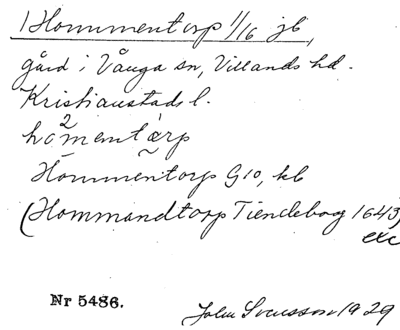 Hommentorp 1/16 jb,
gård i Vånga sn, Villands hd.
Kristianstads l.
hom̄entàrp
Hommentorp G10, kb
(Hommandtorp Tiendebog 1643)
exc
Nr 5486.
John Svensson 1929